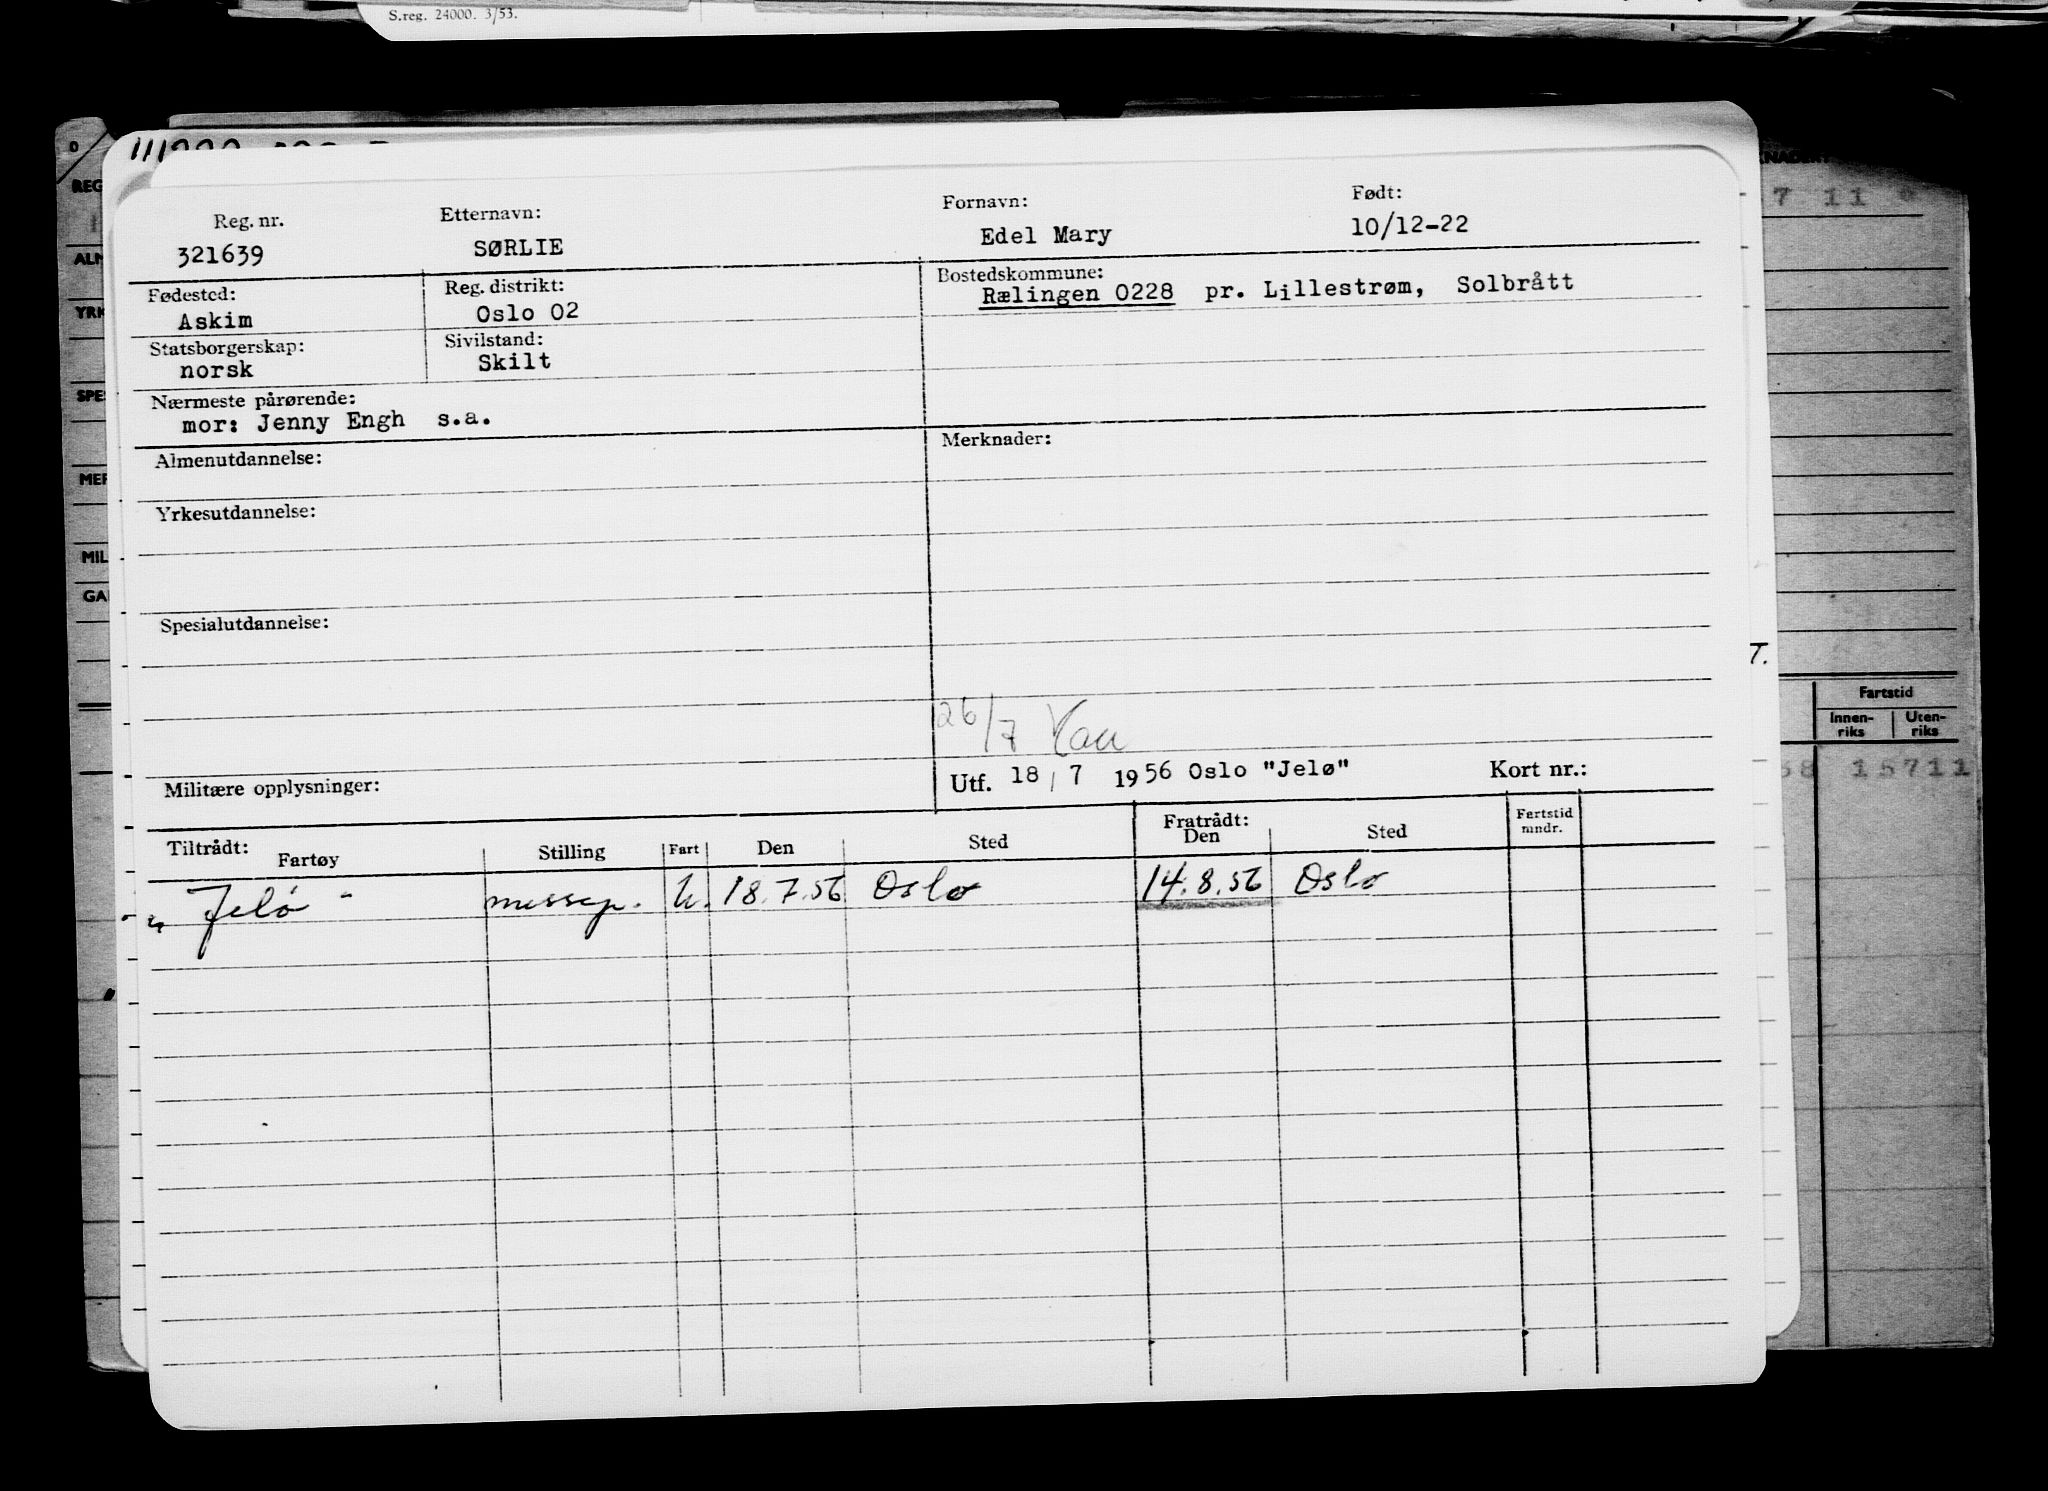 S.reg. 24000. 3/53.
Reg. nr. Etternavn: Fornavn: Født:
321639 SØRLIE Edel Mary 10/12-22
Fødested: Reg. distrikt: Bostedskommune:
Askim Oslo 02 Rælingen 0228 pr. Lillestrøm, Solbrått
Statsborgerskap: Sivilstand:
norsk Skilt
Nærmeste pårørende:
mor: Jenny Engh s.a.
Almenutdannelse: Merknader:
Yrkesutdannelse:
Spesialutdannelse:
26/7
Militære opplysninger: Utf. 18/7 1956 Oslo "Jelø" Kort nr.:
Tiltrådt: Fratrådt:
Fartøy Stilling Fart Den Sted Den Sted Fartstid mndr.
"Jelø" messep. U. 18.7.56 Oslo 14.8.56 Oslo
T.
7 11
Fartstid
Innen-riks Uten-riks
15711
REG
ALM
YRK
SPES
MER
MIL
GA